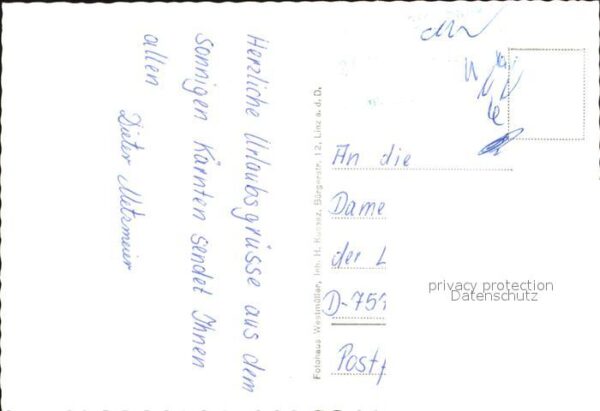 Herzliche Urlaubsgrüsse aus dem
sonnigen Kärnten sendet Ihnen
allen
Dieter Metzmeier
Fotohaus Westmüller, Inh. H. Kucsez, Bürgerstr. 12, Linz a. d. D.
An die
Dame
der L
D-757
Postf
privacy protection
Datenschutz